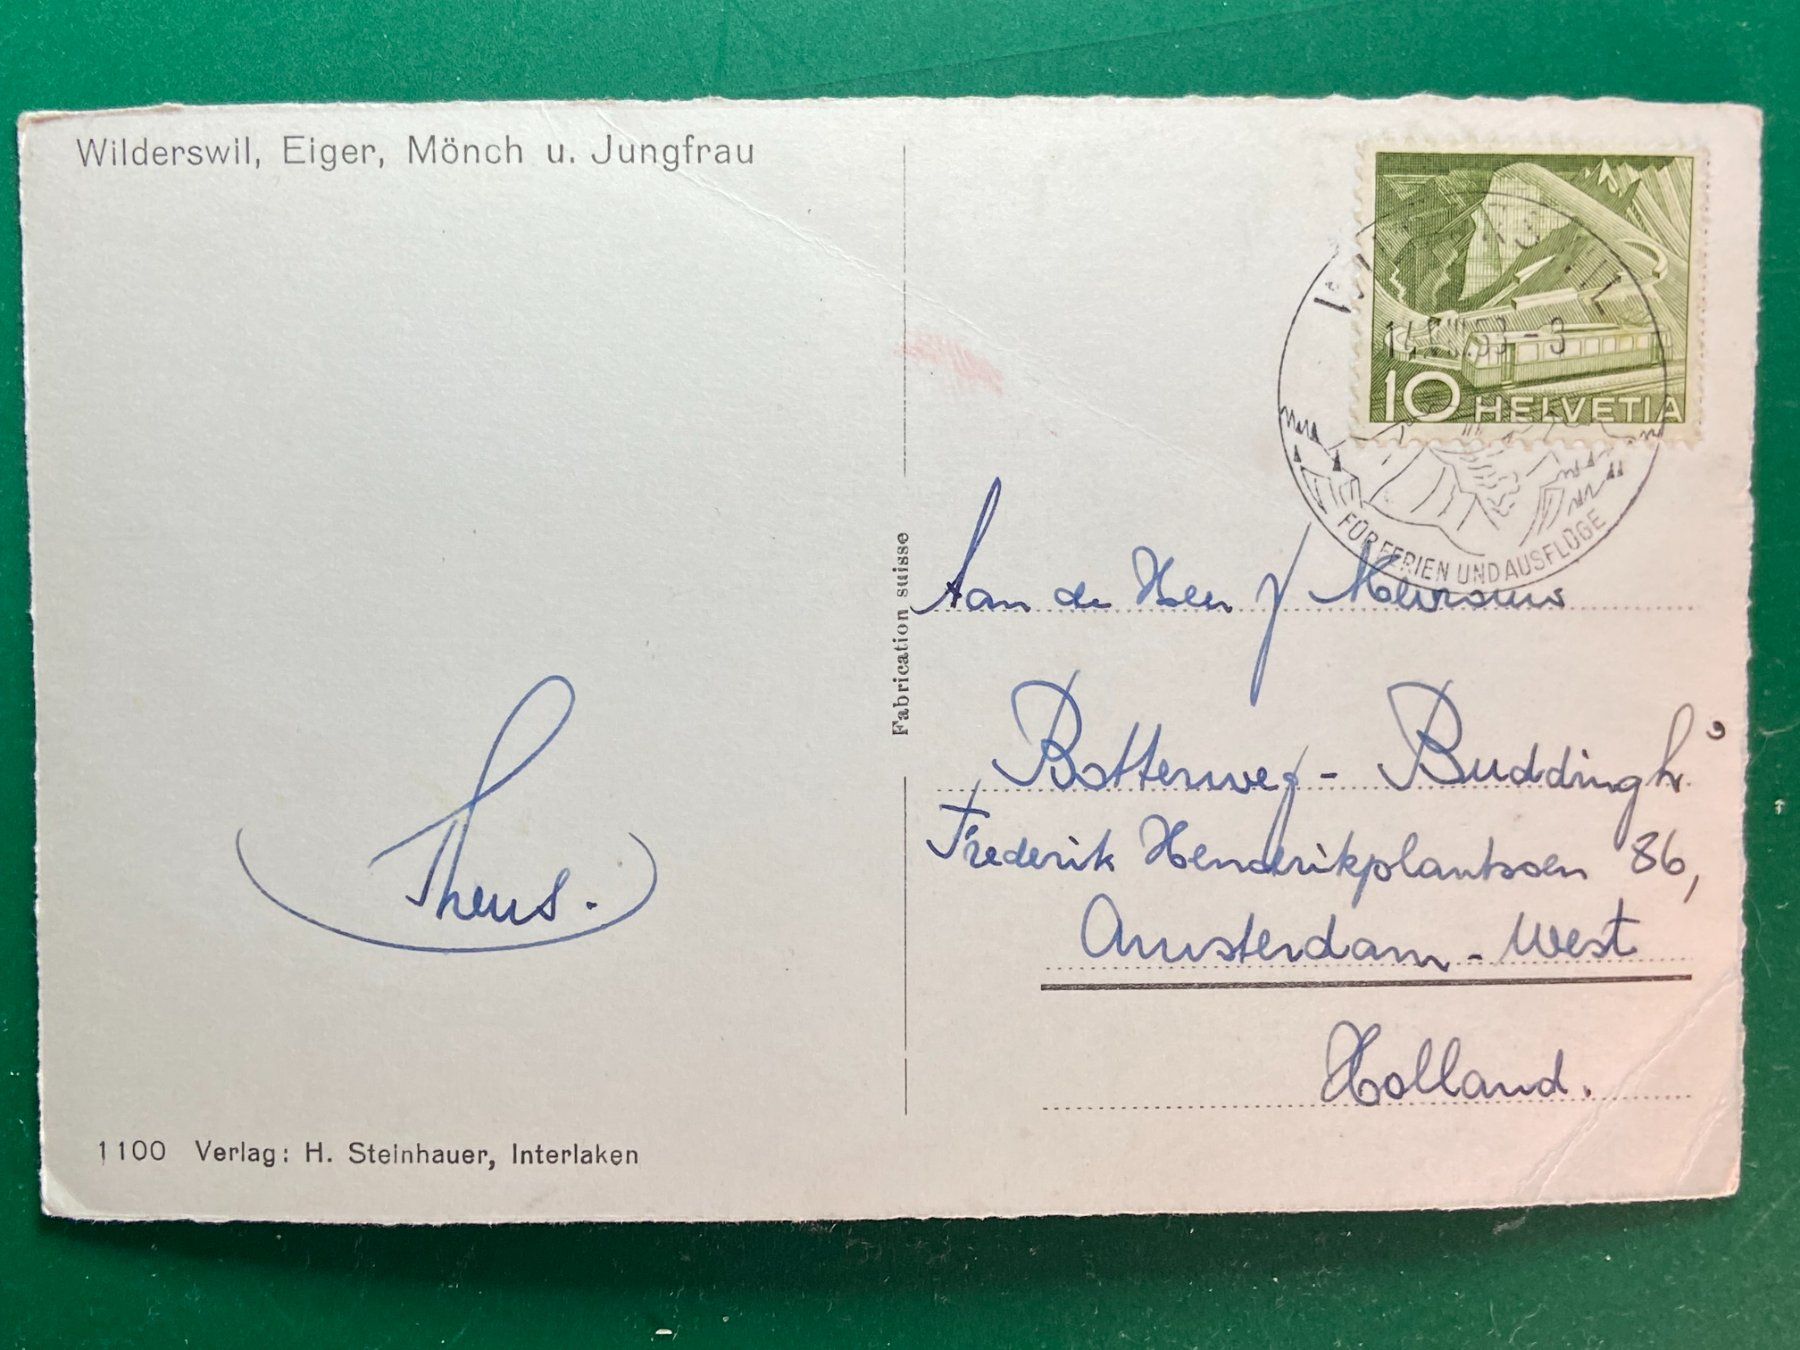 Wilderswil, Eiger, Mönch u. Jungfrau
10 HELVETIA
WILDERSWIL
53-3
FÜR FERIEN UND AUSFLÜGE
Fabrication suisse
Aan de Heer / Mevrouw
Botterweg - Buddingh'
Frederik Hendrikplantsoen 86,
Amsterdam-West
Holland.
Theus.
1100 Verlag: H. Steinhauer, Interlaken